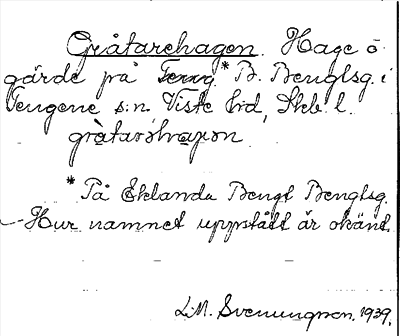 Gråtarehagen. Hage ö
gärde på * B. Bengtsg. i
Tengene s:n. Viste hd, Skb. l.

* På Eklanda Bengt Bengtsg.
Hur namnet uppstått är okänt.
L.M. Svenungson. 1939.